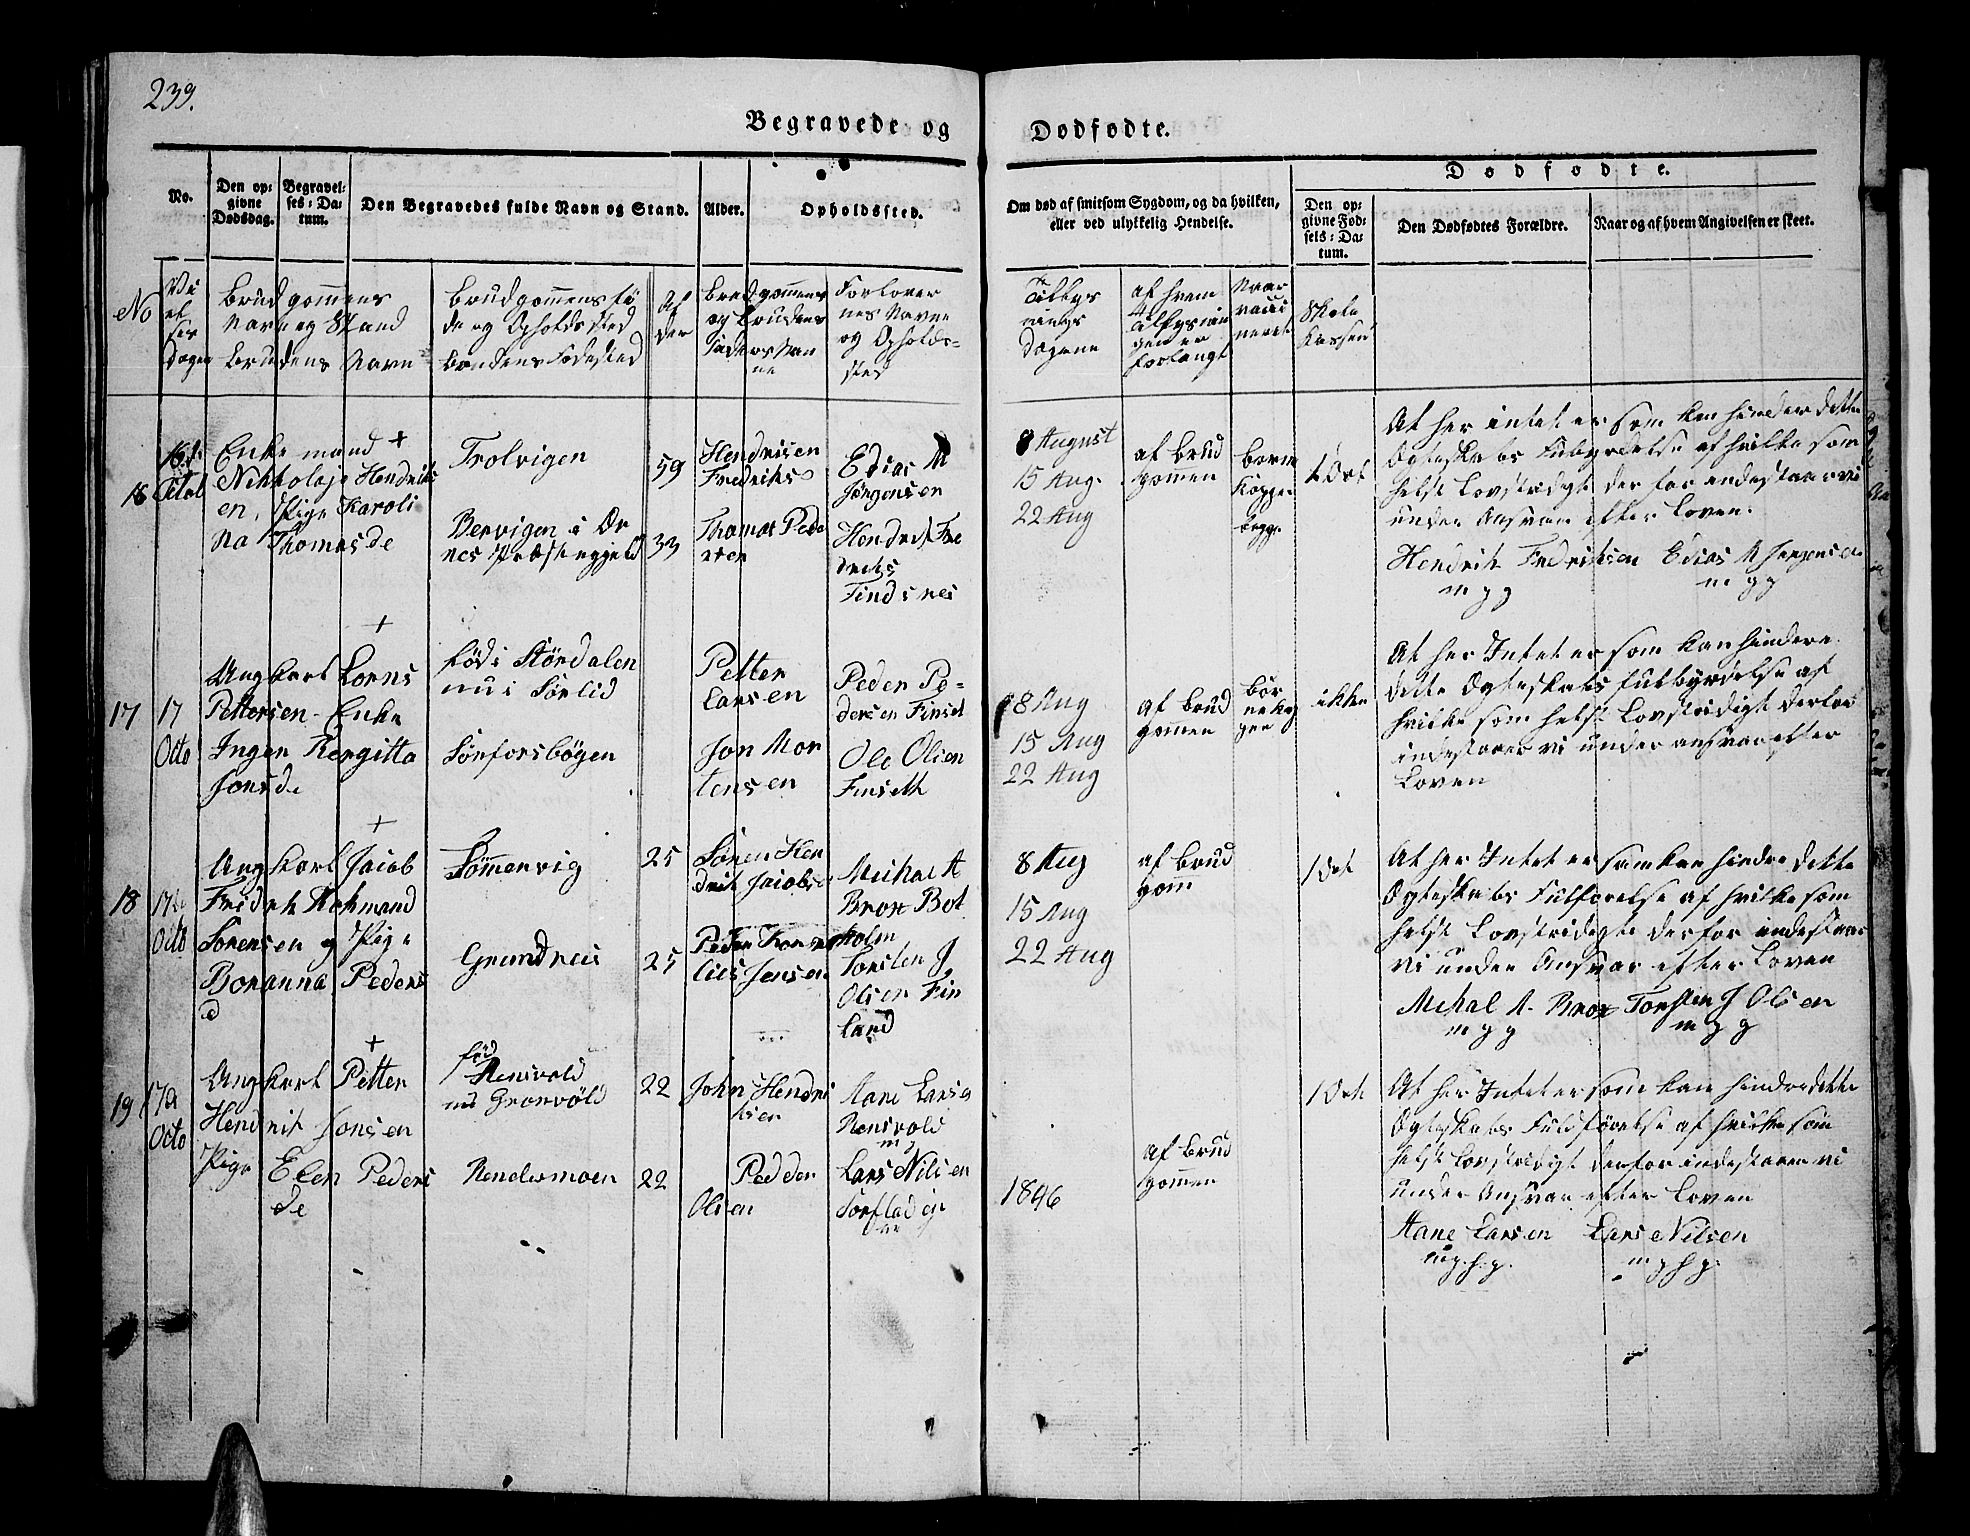 239.
Begravede og Dødfødte.
No.
Den op-
givne
Dødsdag.
Begravel-
ses-Da-
tum.
Den Begravedes fulde Navn og Stand.
Alder.
Opholdssted.
Om død af smitsom Sygdom, og da hvilken,
eller ved ulykkelig Hendelse.
Dødfødte.
Den op-
givne Fød-
sels-Da-
tum.
Den Dødfødtes Forældre.
Naar og af hvem Angivelsen er skeet.
No
Vi
el
ses
dagen
Brudgommens
Navn og Stand
Brudens Navn
Brudgommens fø
de og Opholdssted
Brudens Fødested
Al
der
Brudgommens
og Brudens
Faders Nav
ne
Forlover
nes Navne
og Opholds-
sted
Tillys
nings
Dagene
af hvem
Tillysnin
gen er
forlangt
Naar
vacci
neret
Skole
Kassen
16
Octob
Enkemand +
Nikkolaje Hendriks
en, Pige Karoli
na Thomasde
Trolvigen
Bervigen i Or
nes Præstegjeld
59
33
Hendriksen
Fredriks
Thomas Pede
rsen
Edias M
Jørgensen
Hendrik Fre
driks
Findsnes
8 August
15 Aug.
22 Aug
af Brud
gommen
børne
Kopper
begge
1 Ort
At her intet er som kan hindre dette
Ægteskabs Fuldbyrdelse af hvilke som
helst Lovstridigt derfor indestaar vi
under Ansvar efter Loven.
Hendrik Fredriksen Edias M Jørgensen
17
17
Octo
+
Ungkarl Lorns
Pettersen - Enke
Inger Bergitta
Jonsd.
fød i Størdalen
nu i Sørlid
Sørforsbøgen
Petter
Larsen
Jon Mor
tensen
Peder Pe-
dersen Finset
Ole Olsen
Finseth
8 Aug
15 Aug
22 Aug
af Brud
gommen
ikke
At her Intet er som kan hindre
dette Ægteskabs fuldbyrdelse af
hvilke som helst Lovstridigt derfor
indestaaer vi under ansvar efter
Loven
18
17de
Octo
+
Ungkarl Jacob
Fridrik Kokmand
Sørensen og Pige
Boranna Peders
d
Lømmervig
Grundnes
25
25
Sønen Hen
drik Jacobs
Peder Korne
lies Jensen
Michael A
Brox Bot
holm
Torsten J
Olsen Fin
land
8 Aug
15 Aug
22 Aug
af Brud
gom
1 Ort
At her Intet er som kan hindre dette
Ægteskabs Fulførelse af hvilke som
helst Lovstridigt derfor indestaar
vi under Ansvar efter Loven
Mehal A. Brox Torsten J Olsen
19
17de
Octo
+
Ungkarl Petter
Hendrik Jonsen
Pige Elen Peders
de
fød
Rensvold
nu Grønvold
Rendermoen
22
22
John Hendri
ksen
Pedder
Olsen
Aane Larsen
Rensvold
Lars Nilsen
1846
af Brud
gommen
1 Ort
At her Intet er som kan hindre dette
Ægteskabs Fuldførelse af hvilke som
helst Lovstridigt derfor indestaaer vi
under Ansvar efter Loven
Aane Larsen Lars Nilsen